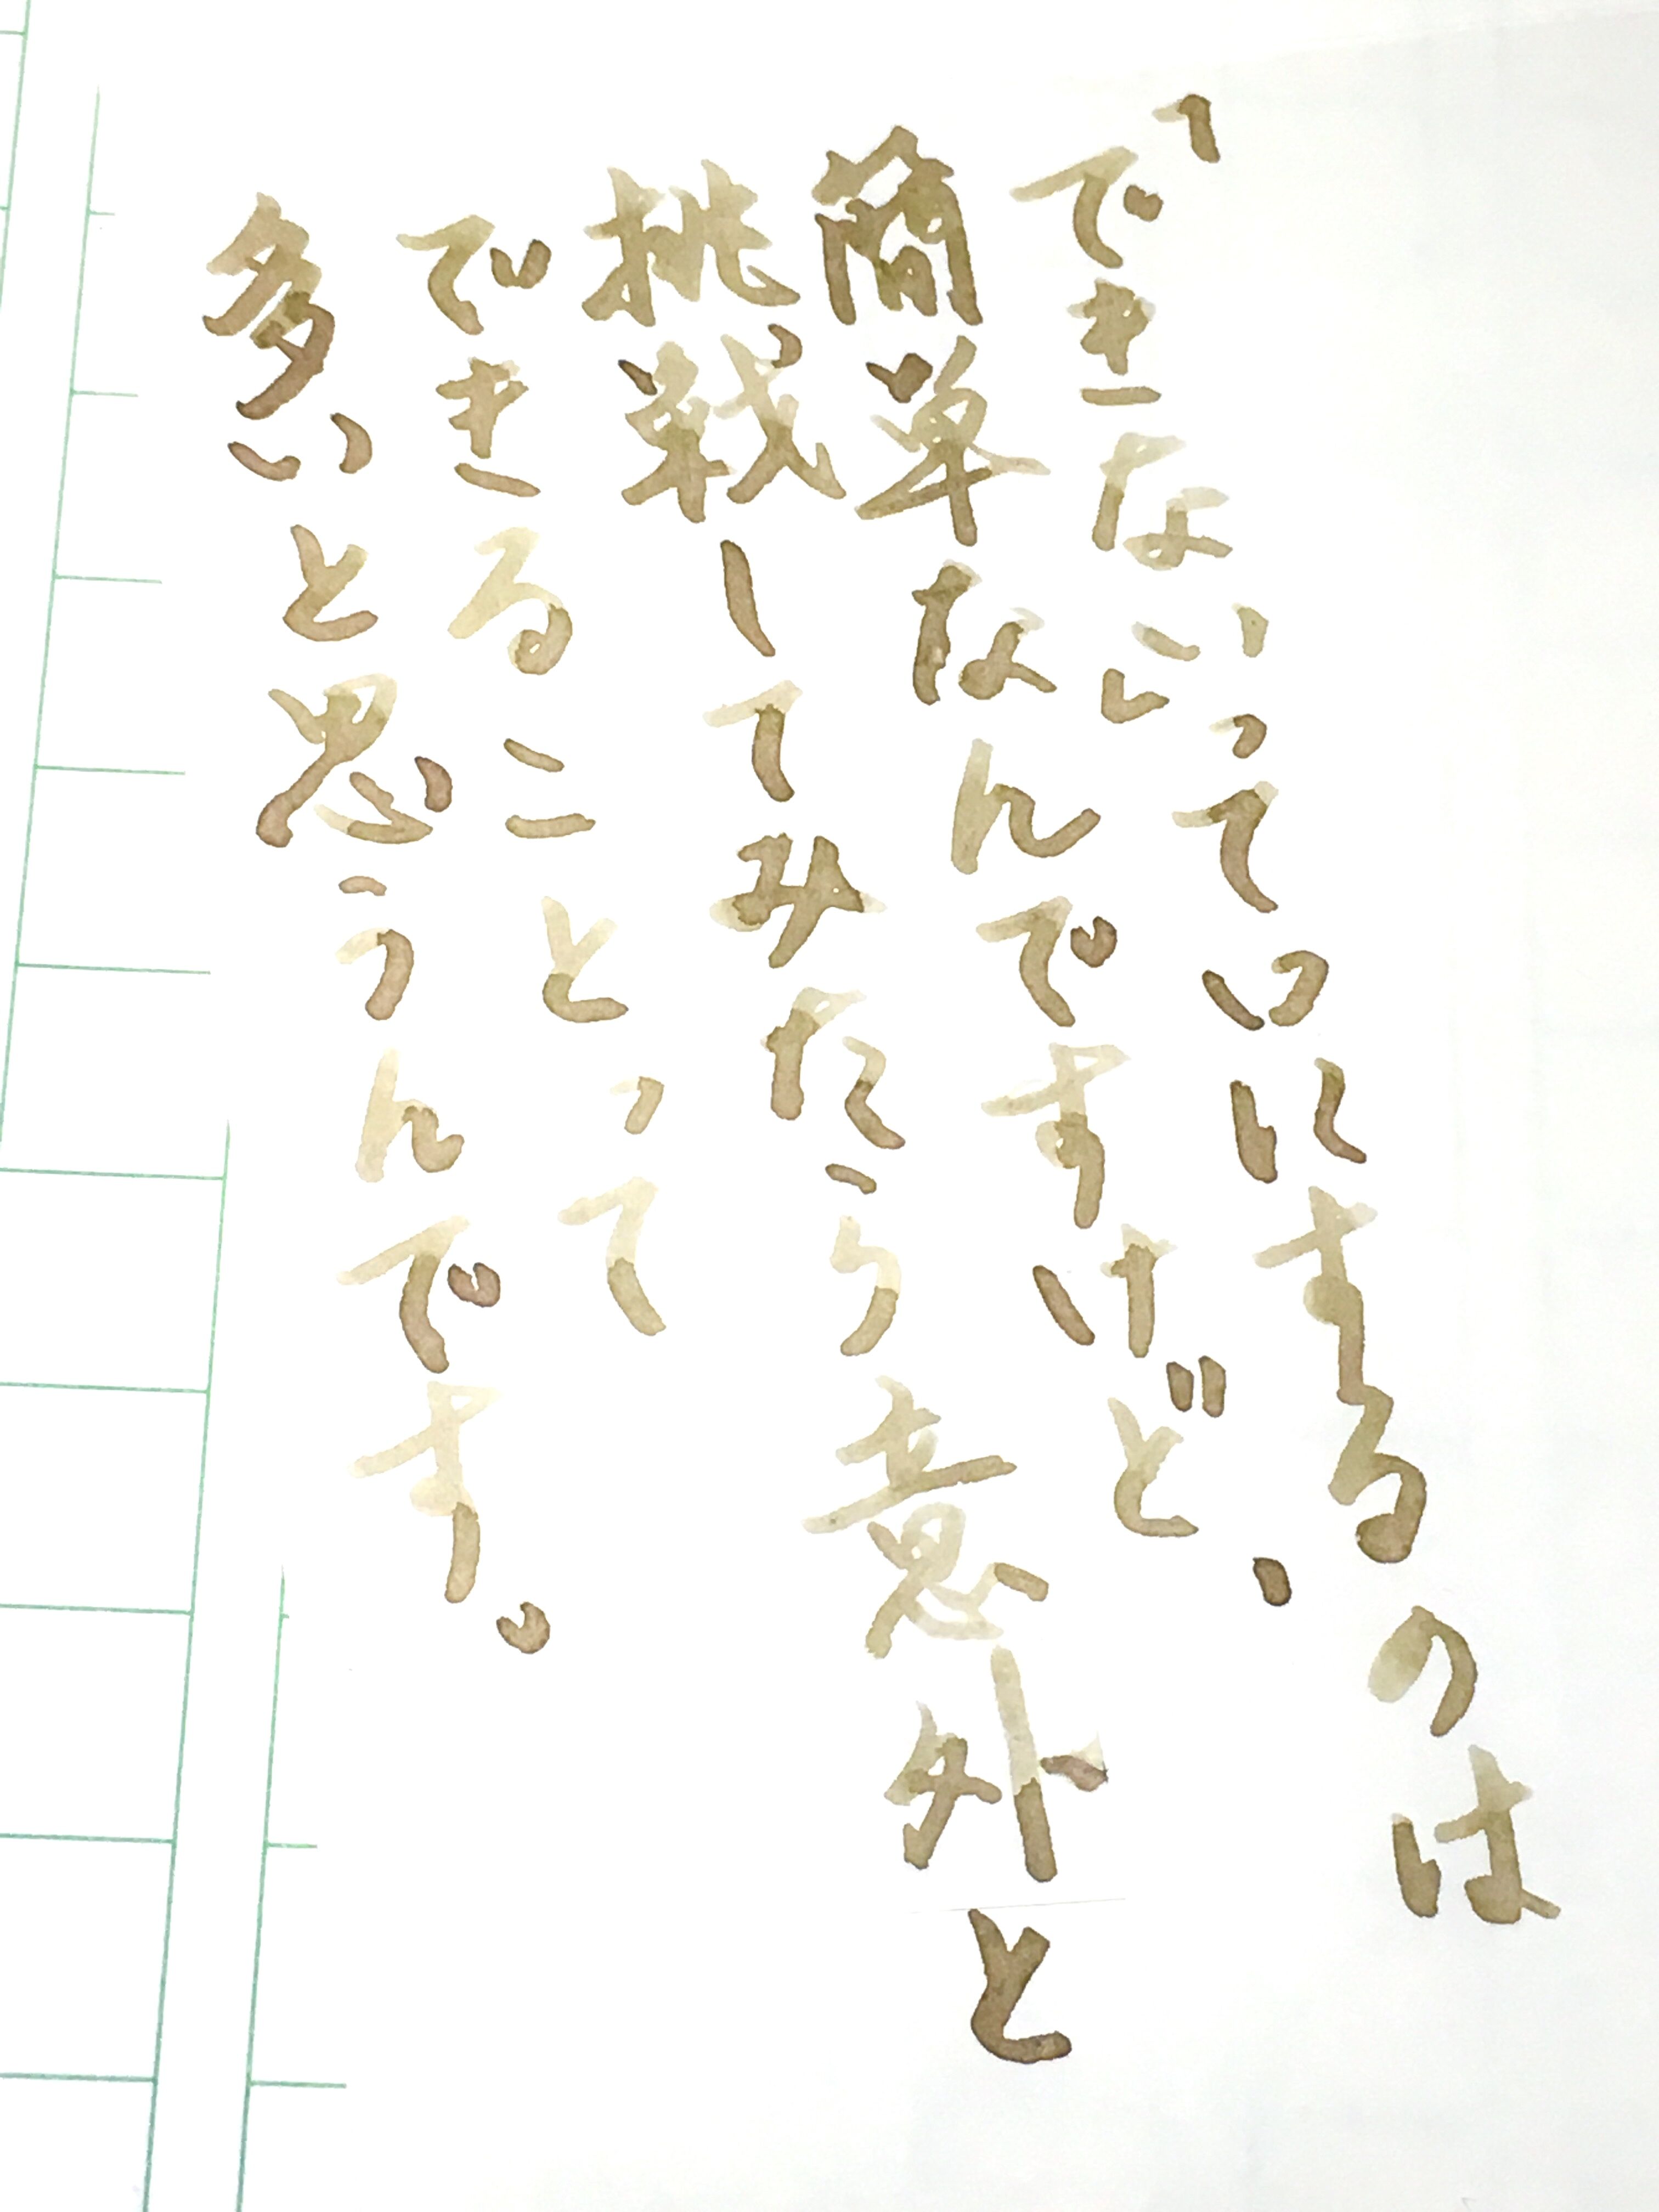 「できない」って口にするのは
簡単なんですけど、
挑戦してみたら意外と
できることって
多いと思うんです。